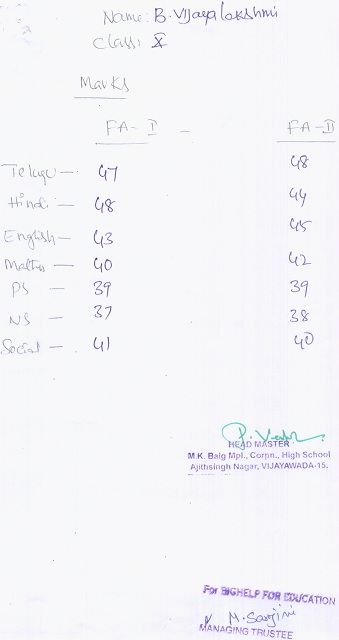 Name: B. Vijaya lakshmi
Class: X
Marks
FA- I - FA-II
Telugu — 47 48
Hindi — 48 44
English — 43 45
Maths — 40 42
PS — 39 39
NS — 37 38
Social — 41 40
HEAD MASTER
M.K. Baig Mpl., Corpn., High School
Ajithsingh Nagar, VIJAYAWADA-15.
For BIGHELP FOR EDUCATION
M. Sarojini
MANAGING TRUSTEE